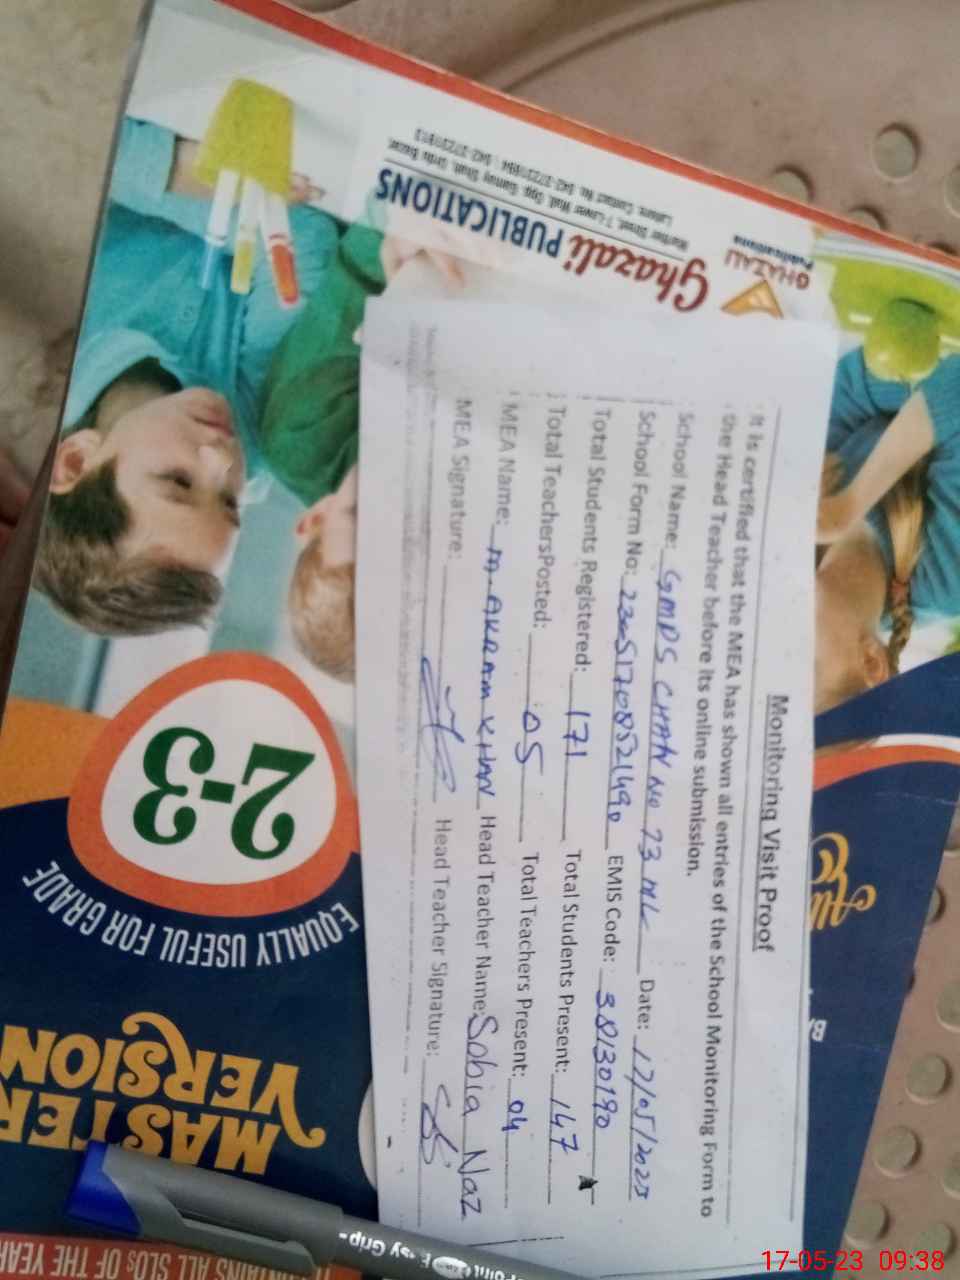 Monitoring Visit Proof
It is certified that the MEA has shown all entries of the School Monitoring Form to
the Head Teacher before its online submission.
School Name: GMPS CHAK NO 73 ML Date: 17/05/2023
School Form No: 23051708521490 EMIS Code: 38130190
Total Students Registered: 171 Total Students Present: 147
Total TeachersPosted: 05 Total Teachers Present: 04
MEA Name: M. AKRAM KHAN Head Teacher Name: Sobia Naz
MEA Signature: Head Teacher Signature:
GHAZALI
Publications
Ghazali PUBLICATIONS
Rattan Street, 7-Lower Mall, Opp. Gamay Shah, Urdu Bazar,
Lahore. Contact No. 042-37231694 : 042-37231913
2-3
EQUALLY USEFUL FOR GRADE
MASTER
VERSION
CONTAINS ALL SLOs OF THE YEAR
Point
Easy Grip
17-05-23 09:38